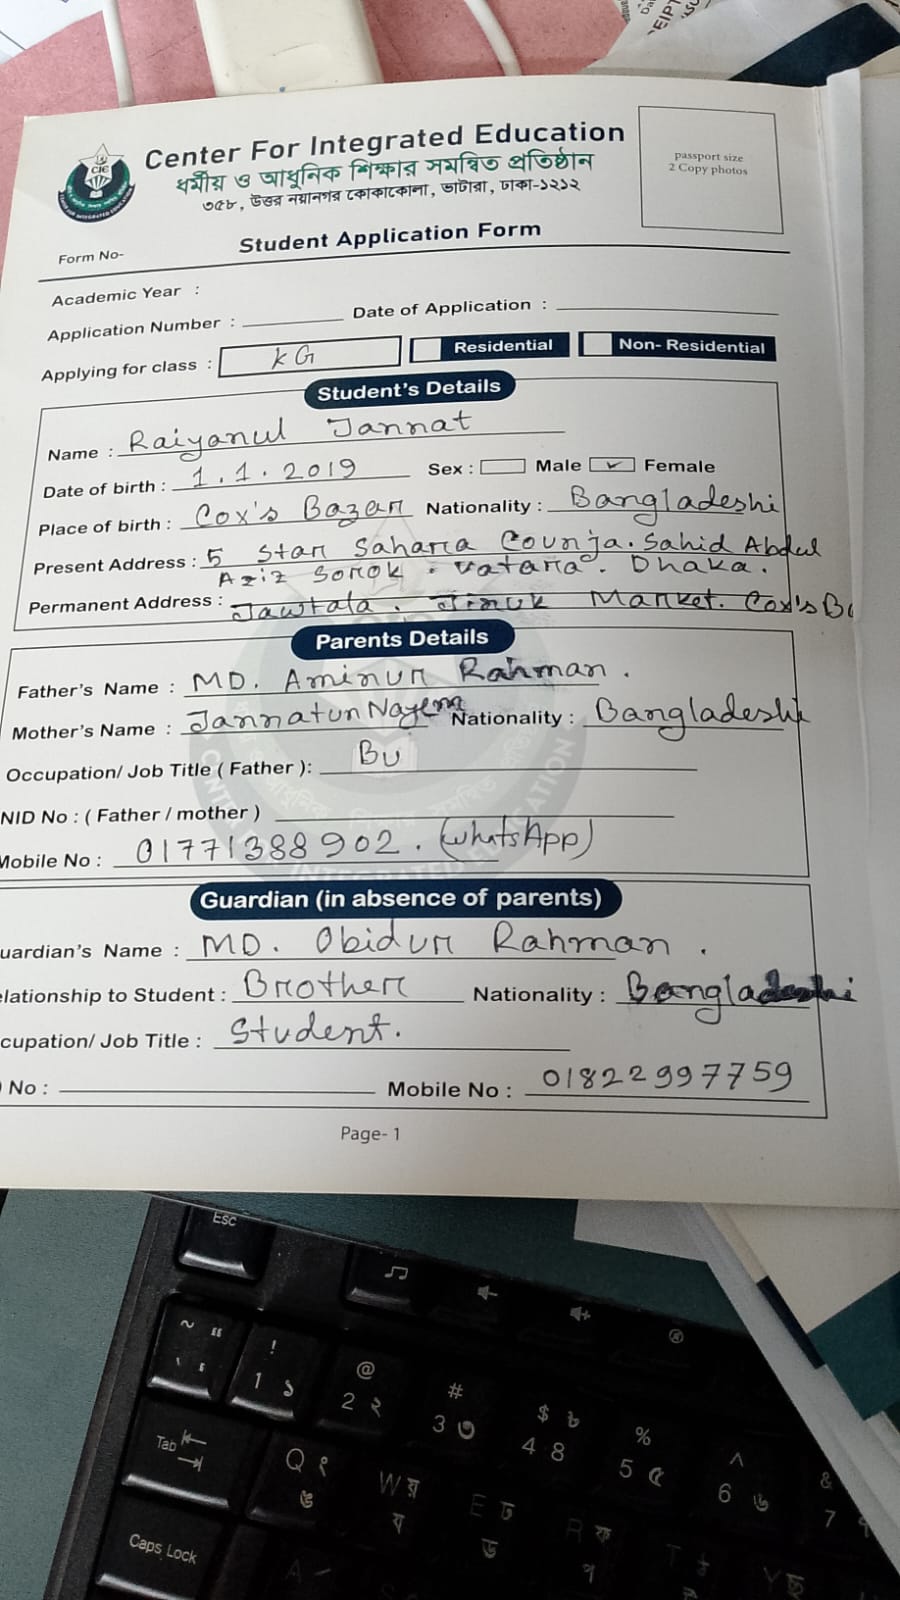 Center For Integrated Education
ধর্মীয় ও আধুনিক শিক্ষার সমন্বিত প্রতিষ্ঠান
৩৫৮, উত্তর নয়ানগর কোকাকোলা, ভাটারা, ঢাকা-১২১২
passport size
2 Copy photos
CIE
Student Application Form
Form No-
Academic Year :
Application Number : Date of Application :
Applying for class : KG Residential Non- Residential
Student's Details
Name : Raiyanul Jannat
Date of birth : 1.1.2019 Sex : Male ✓ Female
Place of birth : Cox's Bazar Nationality : Bangladeshi
Present Address : 5 Star Saharia Counja. Sahid Abdul
Aziz Sorok. Vatara. Dhaka.
Permanent Address : Jawtala. Market. Cox's Ba
Parents Details
Father's Name : MD. Aminur Rahman.
Mother's Name : Jannatun Nayem Nationality : Bangladeshi
Occupation/ Job Title ( Father ): Bu
NID No : ( Father / mother )
Mobile No : 01771388902. (WhatsApp)
Guardian (in absence of parents)
uardian's Name : MD. Obidur Rahman.
elationship to Student : Brother Nationality : Bangladeshi
cupation/ Job Title : Student.
No : Mobile No : 01822997759
Page- 1
Esc
~ "
! 1 ১
@ 2 ২
# 3 ৩
$ ৳ 4 ৪
% 5 ৫
^ 6 ৬
& 7
Tab
Q
W য় য
E ঢ ড
R ফ প
Caps Lock